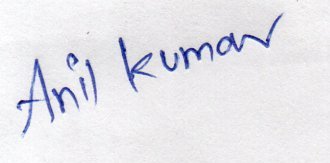 Anil kumar